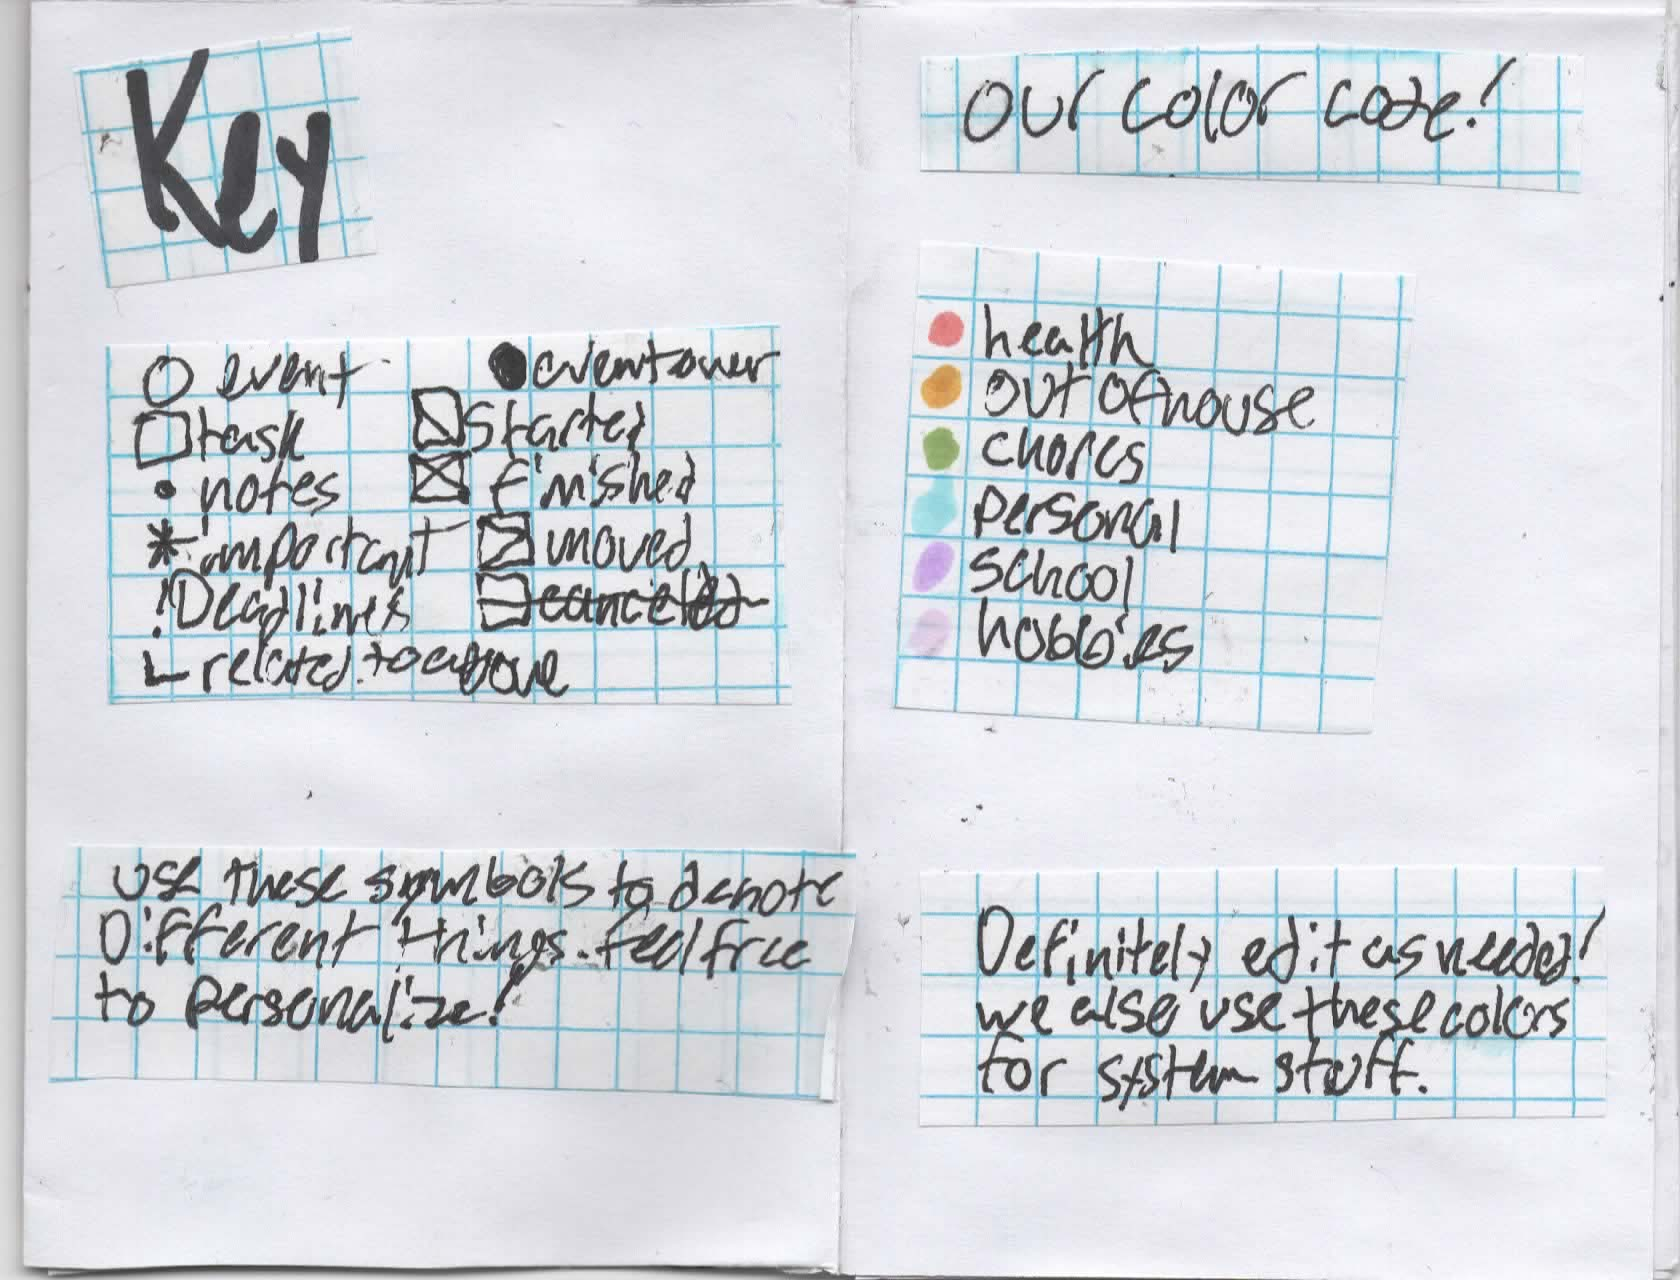 Key
○ event ● event over
☐ task ⧅ Started
• notes ☒ finished
* important moved
! Deadlines canceled
L related to above
use these symbols to denote
Different things. feel free
to personalize!
our color code!
health
out of house
chores
personal
school
hobbies
Definitely edit as needed!
we also use these colors
for system stuff.